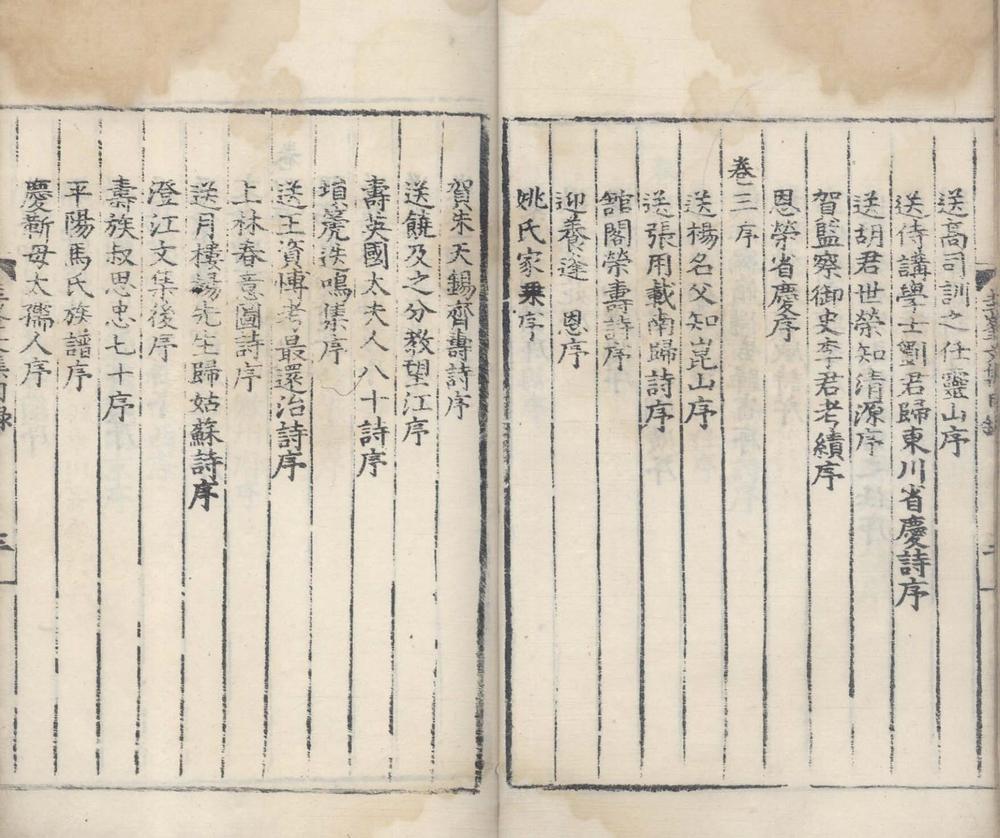 送高司訓之任靈山序
送侍講學士劉君歸東川省慶詩序
送胡君世榮知清源序
賀監察御史李君考績序
恩榮省慶序
卷三序
送楊名父知崑山序
送張用載南歸詩序
舘閣榮壽詩序
迎養逢 恩序
姚氏家乗序
賀朱天錫齊壽詩序
送饒及之分教望江序
壽英國太夫人八十詩序
塤箎迭鳴集序
送王資博考最還治詩序
上林春意圖詩序
送月樓楊先生歸姑蘇詩序
澄江文集後序
壽族叔思忠七十序
平陽馬氏族譜序
慶靳母太孺人序
三